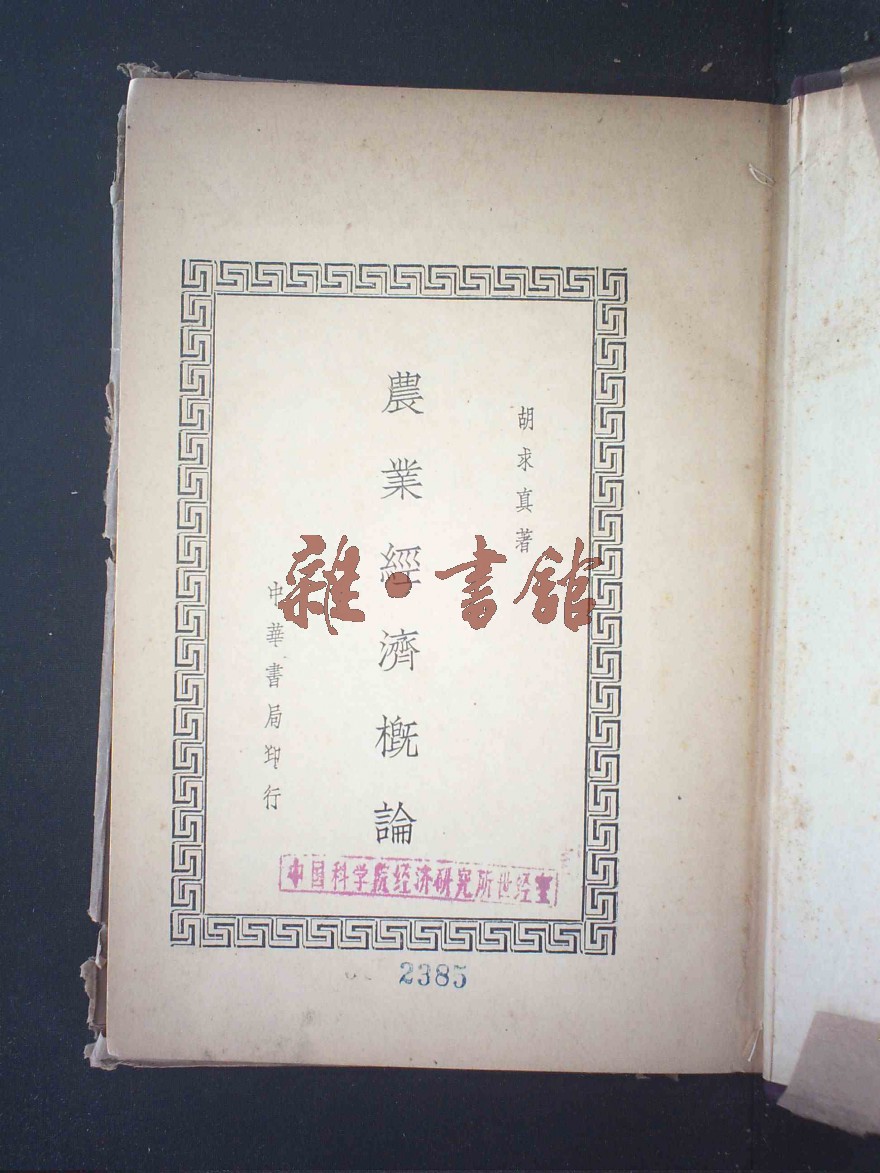 胡求真著
農業經濟概論
中華書局印行
雜·書館
中国科学院经济研究所世经室
2385